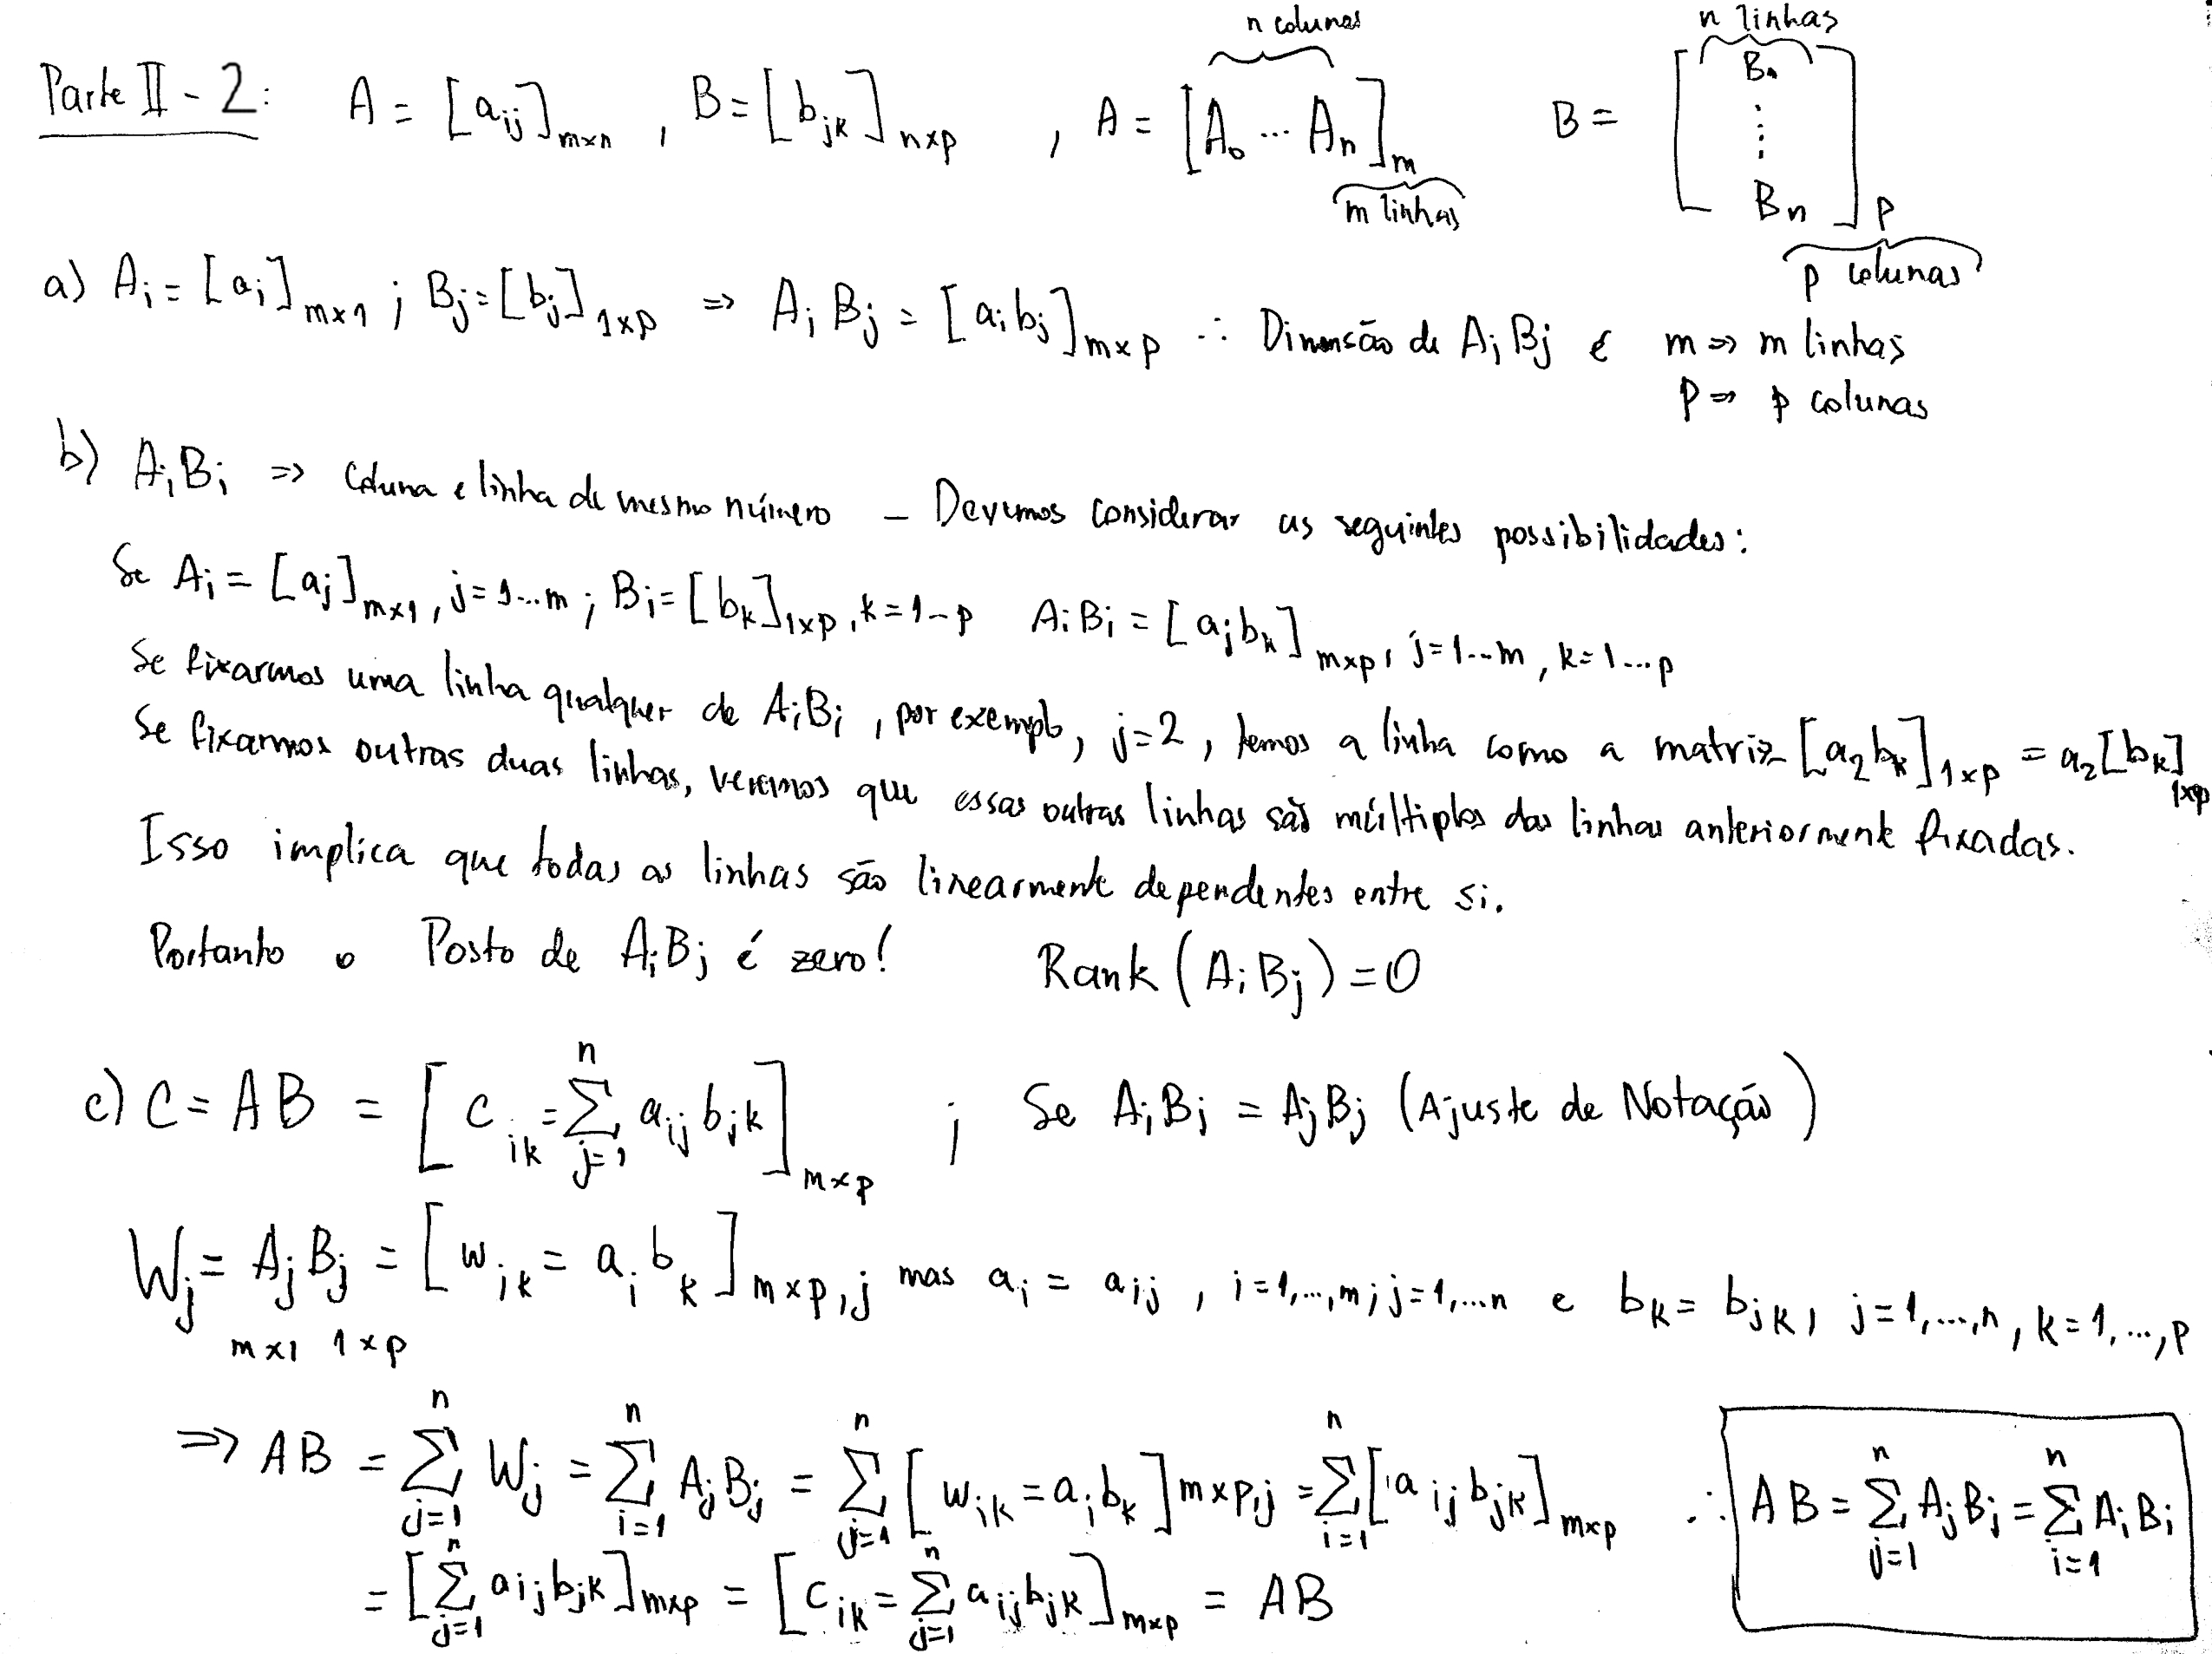 n colunas
n linhas
Parte II - 2: A = [a_ij]_m×n , B = [b_jk]_n×p , A = [A_0 ... A_n]_m B = [B_n ⋮ B_n]_p
m linhas
p colunas
a) A_i = [a_i]_m×1 ; B_j = [b_j]_1×p => A_i B_j = [a_i b_j]_m×p ∴ Dimensão de A_i B_j é m => m linhas
p => p colunas
b) A_i B_i => Coluna e linha de mesmo número - Devemos considerar as seguintes possibilidades:
Se A_i = [a_j]_m×1, j=1...m ; B_i = [b_k]_1×p, k=1-p A_i B_i = [a_j b_k]_m×p, j=1...m, k=1...p
Se fixarmos uma linha qualquer de A_i B_i, por exemplo, j=2, temos a linha como a matriz [a_2 b_k]_1×p = a_2 [b_k]_1×p
Se fixarmos outras duas linhas, veremos que essas outras linhas são múltiplos das linhas anteriormente fixadas.
Isso implica que todas as linhas são linearmente dependentes entre si.
Portanto o Posto de A_i B_j é zero! Rank (A_i B_j) = 0
c) C = AB = [c_ik = Σ_{j=1}^{n} a_ij b_jk]_m×p ; Se A_i B_i = A_j B_j (Ajuste de Notação)
W_j = A_j B_j = [w_ik = a_i b_k]_m×p,j mas a_i = a_ij , i=1,...,m; j=1,...n e b_k = b_jk, j=1,...,n, k=1,...,p
m×1 1×p
=> AB = Σ_{j=1}^{n} W_j = Σ_{i=1}^{n} A_j B_j = Σ_{j=1}^{n} [w_ik = a_i b_k]_m×p,j = Σ_{i=1}^{n} [a_ij b_jk]_m×p ∴ AB = Σ_{j=1}^{n} A_j B_j = Σ_{i=1}^{n} A_i B_i
= [Σ_{j=1}^{n} a_ij b_jk]_m×p = [c_ik = Σ_{j=1}^{n} a_ij b_jk]_m×p = AB